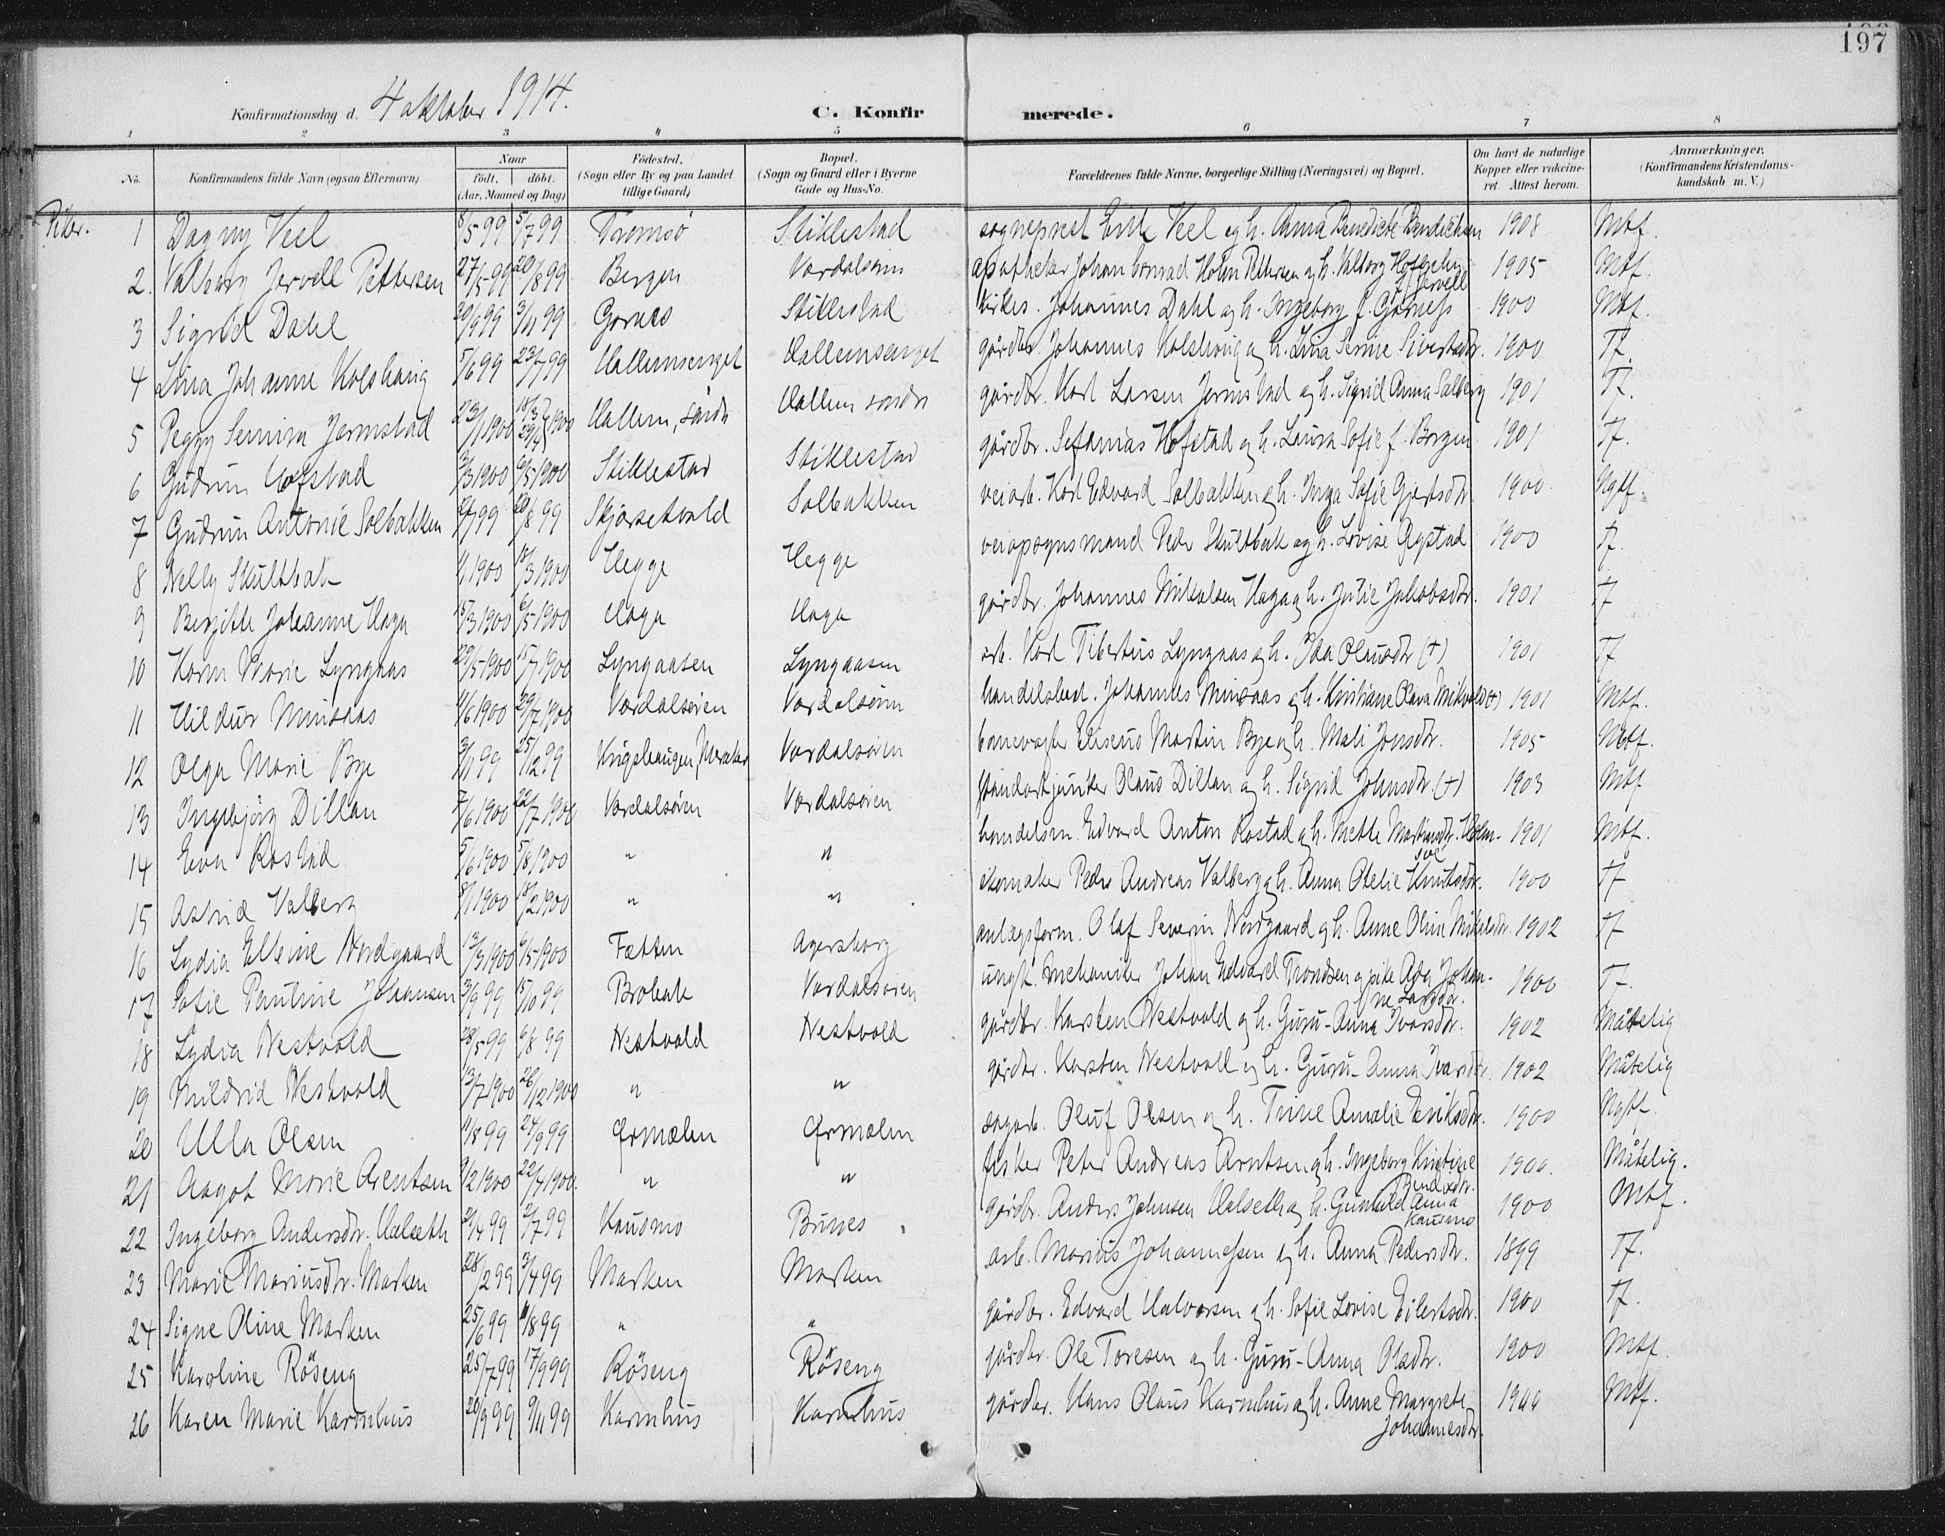 197
Konfirmationsdag d. 4 oktober 1914.
C. Konfirmerede.
1 2 3 4 5 6 7 8
No. Konfirmandens fulde Navn (ogsaa Efternavn) Naar født. døbt. (Aar, Maaned og Dag) Fødested. (Sogn eller By og paa Landet tillige Gaard) Bopæl. (Sogn og Gaard eller i Byerne Gade og Hus-No. Forældrenes fulde Navne, borgerlige Stilling (Næringsvei) og Bopæl. Om havt de naturlige Kopper eller vaccineret. Attest herom. Anmærkninger. (Konfirmandens Kristendomskundskab m. V.)
Piker.
1 Dagny Veel 8/5 99 5/7 99 Tromsö Stiklestad sogneprest Veel og h. Anna Benedicte Bendichsen 1908 Mtf.
2. Valborg Jervell Pettersen 27/5 99 20/8 99 Bergen Værdalsøren apotheker Johan Conrad Holm Pettersen og h. Valborg f. Jervell 1905 Mtf.
3 Sigrid Dahl 20/9 99 3/11 99 Garnes Stiklestad kirkes. Johannes Dahl og h. Ingeborg f. Garnes 1900 Mtf.
4 Lina Johanne Kolshaug 5/6 99 23/7 99 Hallemsenget Hallemsenget gårdbr. Johannes Kolshaug og h. Lina Serine Sivertsdtr. 1900 Tf.
5 Peggy Jermstad 23/1 1900 18/3 1900 Hallem, söndre Hallem söndre gårdbr. Karl Larsen Jermstad og h. Sigrid Anna Salberg 1901 Tf.
6 Gudrun Hofstad 3/3 1900 6/5 1900 Stiklestad Stiklestad gårdbr. Sefanias Hofstad og h. Laura Sofie f. Borgen 1901 Tf.
7 Gudrun Antonie Solbakken 99 20/8 99 Skjørsetvald Solbakken veiarb. Karl Edvard Solbakken og h. Inga Sofie Gjertsdtr. 1900 Nytf.
8 Nelly Skultbak 1900 18/3 1900 Hegge Hegge veiopsynsmand Peder Skultbak og h. Lovise Ygstad 1900 Tf.
9 Bergitte Johanne Haga 15/3 1900 6/5 1900 Haga Haga gårdbr. Johannes Mikalsen Haga og h. Julie Jakobsdtr. 1901 Tf
10 Karen Marie Lyngaas 29/5 1900 15/7 1900 Lyngaasen Lyngaasen arb. Karl Tibertius Lyngaas og h. Ida Olausdtr (+) 1901 Tf
11 Hildur Minsaas 11/6 1900 29/7 1900 Værdalsøren Værdalsøren handelsbest. Johannes Minsaas og h. Kristiane Olava Mikvold (+) 1901 Mtf.
12 Olga Marie Bye 3/11 99 25/12 99 Krigshaugen, Meraker Værdalsøren banevogter Eliseus Martin Bye og h. Mali Jonsdtr. 1905 Mtf.
13 Ingebjørg Dillan 7/6 1900 22/7 1900 Værdalsøren Værdalsøren standartjunker Olaus Dillan og h. Sigrid Johnsdtr. (+) 1903 Mtf.
14 Eva Rostad 5/6 1900 5/8 1900 " " handelsm. Edvard Anton Rostad og h. Mette Martinsdtr. 1901 Mtf.
15 Astrid Valberg 8/1 1900 18/2 1900 " " skomaker Peder Andreas Valberg og h. Anna Otelie 1900 Tf
16 Lydia Elbine Nordgaard 13/3 1900 6/5 1900 Fætten Agersborg anlægsform. Olaf Severin Nordgaard og h. Anne Oline Mikalsdtr. 1902 Tf
17 Sofie Pauline Johansen 3/9 99 15/10 99 Brobak Værdalsøren ungk. mekaniker Johan Edvard Trondsen og pike Johanne Larsdtr. 1900 Tf.
18 Lydia Nestvold 28/5 99 6/8 99 Nestvold Nestvold gårdbr. Karsten Nestvold og h. Guru-Anna Ivarsdtr. 1902 Måtelig
19 Mildrid Nestvold 13/7 1900 26/12 1900 " " gårdbr. Karsten Nestvold og h. Guru-Anna Ivarsdtr. 1902 Måtelig
20 Ulla Olsen 11/8 99 24/9 99 Ørmælen Ørmælen sagarb. Oluf Olsen og h. Trine Amalie Eriksdtr. 1900 Nytf.
21 Aagot Marie Arentsen 9/2 1900 22/4 1900. " " fisker Peter Andreas Arntsen og h. Ingeborg Kristine 1900. Måtelig.
22 Ingeborg Andersdtr. Halseth 21/4 99 2/7 99 Kausmo Brines gårdbr. Anders Johnsen Halseth og h. Gunhild Anna Kausmo 1900 Mtf.
23 Marie Mariusdtr. Marken 28/2 99 3/4 99 Marken Marken arb. Marius Johannessen og h. Anna Pedersdtr. 1899 Tf.
24 Signe Oline Marken 25/6 99 8 99 " " gårdbr. Edvard Halvorsen og h. Sofie Lovise Eilertsdtr. 1900 Tf.
25 Karoline Röseng 25/7 99 17/9 99 Röseng Röseng gårdbr. Ole Toresen og h. Guru-Anna Olsdtr. 1900 Mtf.
26 Karen Marie Karmhus 20/9 99 9/11 99 Karmhus Karmhus gårdbr. Hans Olaus Karmhus og h. Anne Margrete Johannesdtr. Mtf.